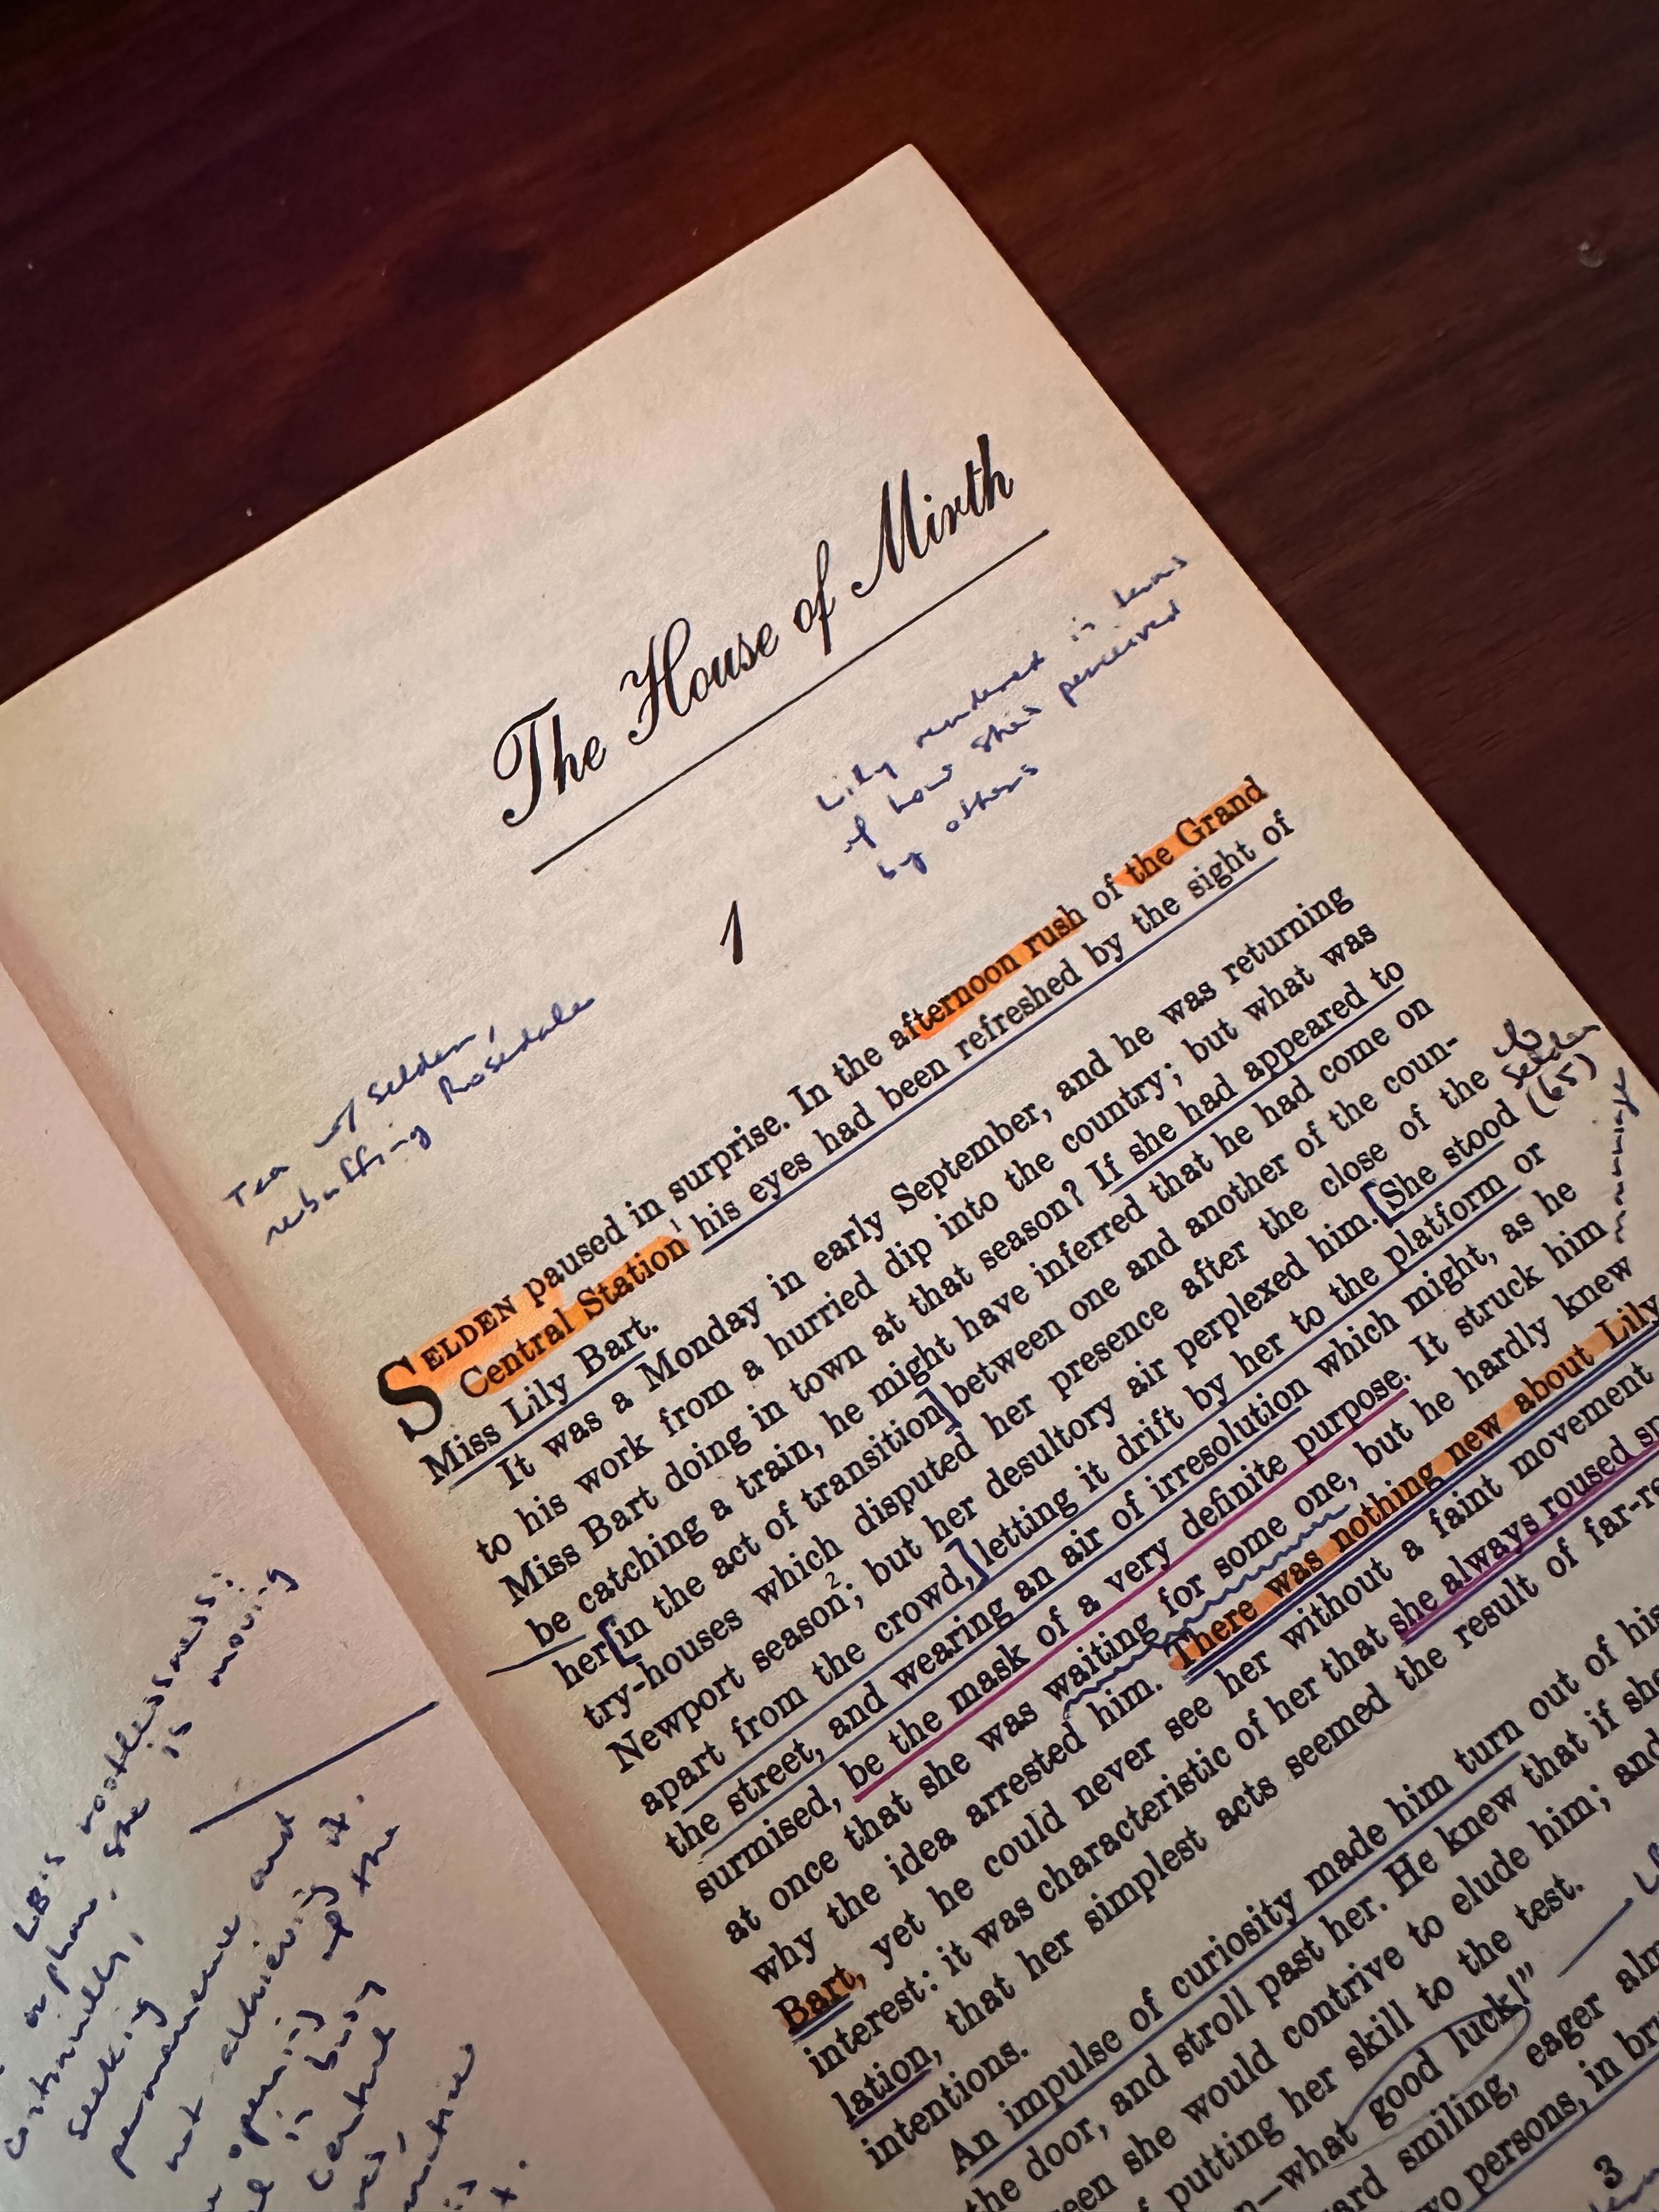 The House of Mirth
Lily rendered in terms
of how she's perceived
by others
1
Tea w/ Selden,
rebuffing Rosedale
SELDEN paused in surprise. In the afternoon rush of the Grand
Central Station¹ his eyes had been refreshed by the sight of
Miss Lily Bart.
It was a Monday in early September, and he was returning
to his work from a hurried dip into the country; but what was
Miss Bart doing in town at that season? If she had appeared to
be catching a train, he might have inferred that he had come on
her [in the act of transition] between one and another of the coun-
try-houses which disputed her presence after the close of the
Newport season²; but her desultory air perplexed him. [She stood
apart from the crowd,] letting it drift by her to the platform or
the street, and wearing an air of irresolution which might, as he
surmised, be the mask of a very definite purpose. It struck him
at once that she was waiting for some one, but he hardly knew
why the idea arrested him. There was nothing new about Lily
Bart, yet he could never see her without a faint movement
interest: it was characteristic of her that she always roused sp
lation, that her simplest acts seemed the result of far-re
intentions.
An impulse of curiosity made him turn out of his
the door, and stroll past her. He knew that if she
een she would contrive to elude him; and
f putting her skill to the test.
n—what good luck!"
ard smiling, eager alm
wo persons, in br
3
Selden
(65)
marriage
LB's rootlessness:
orphan, she is moving
continually,
seeking
permanence and
not achieving it.
opening of the
is busy
Central